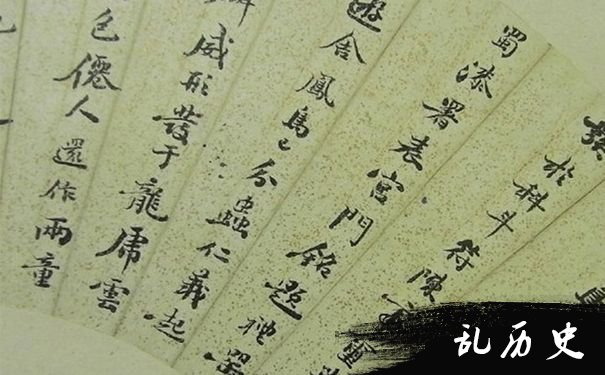 於科斗符陳
蜀漆署表宮門銘題禮器
遊舍鳳鳥之分蟲仁義起
威形發于龍虎雲
色僊人還作兩童
乱历史